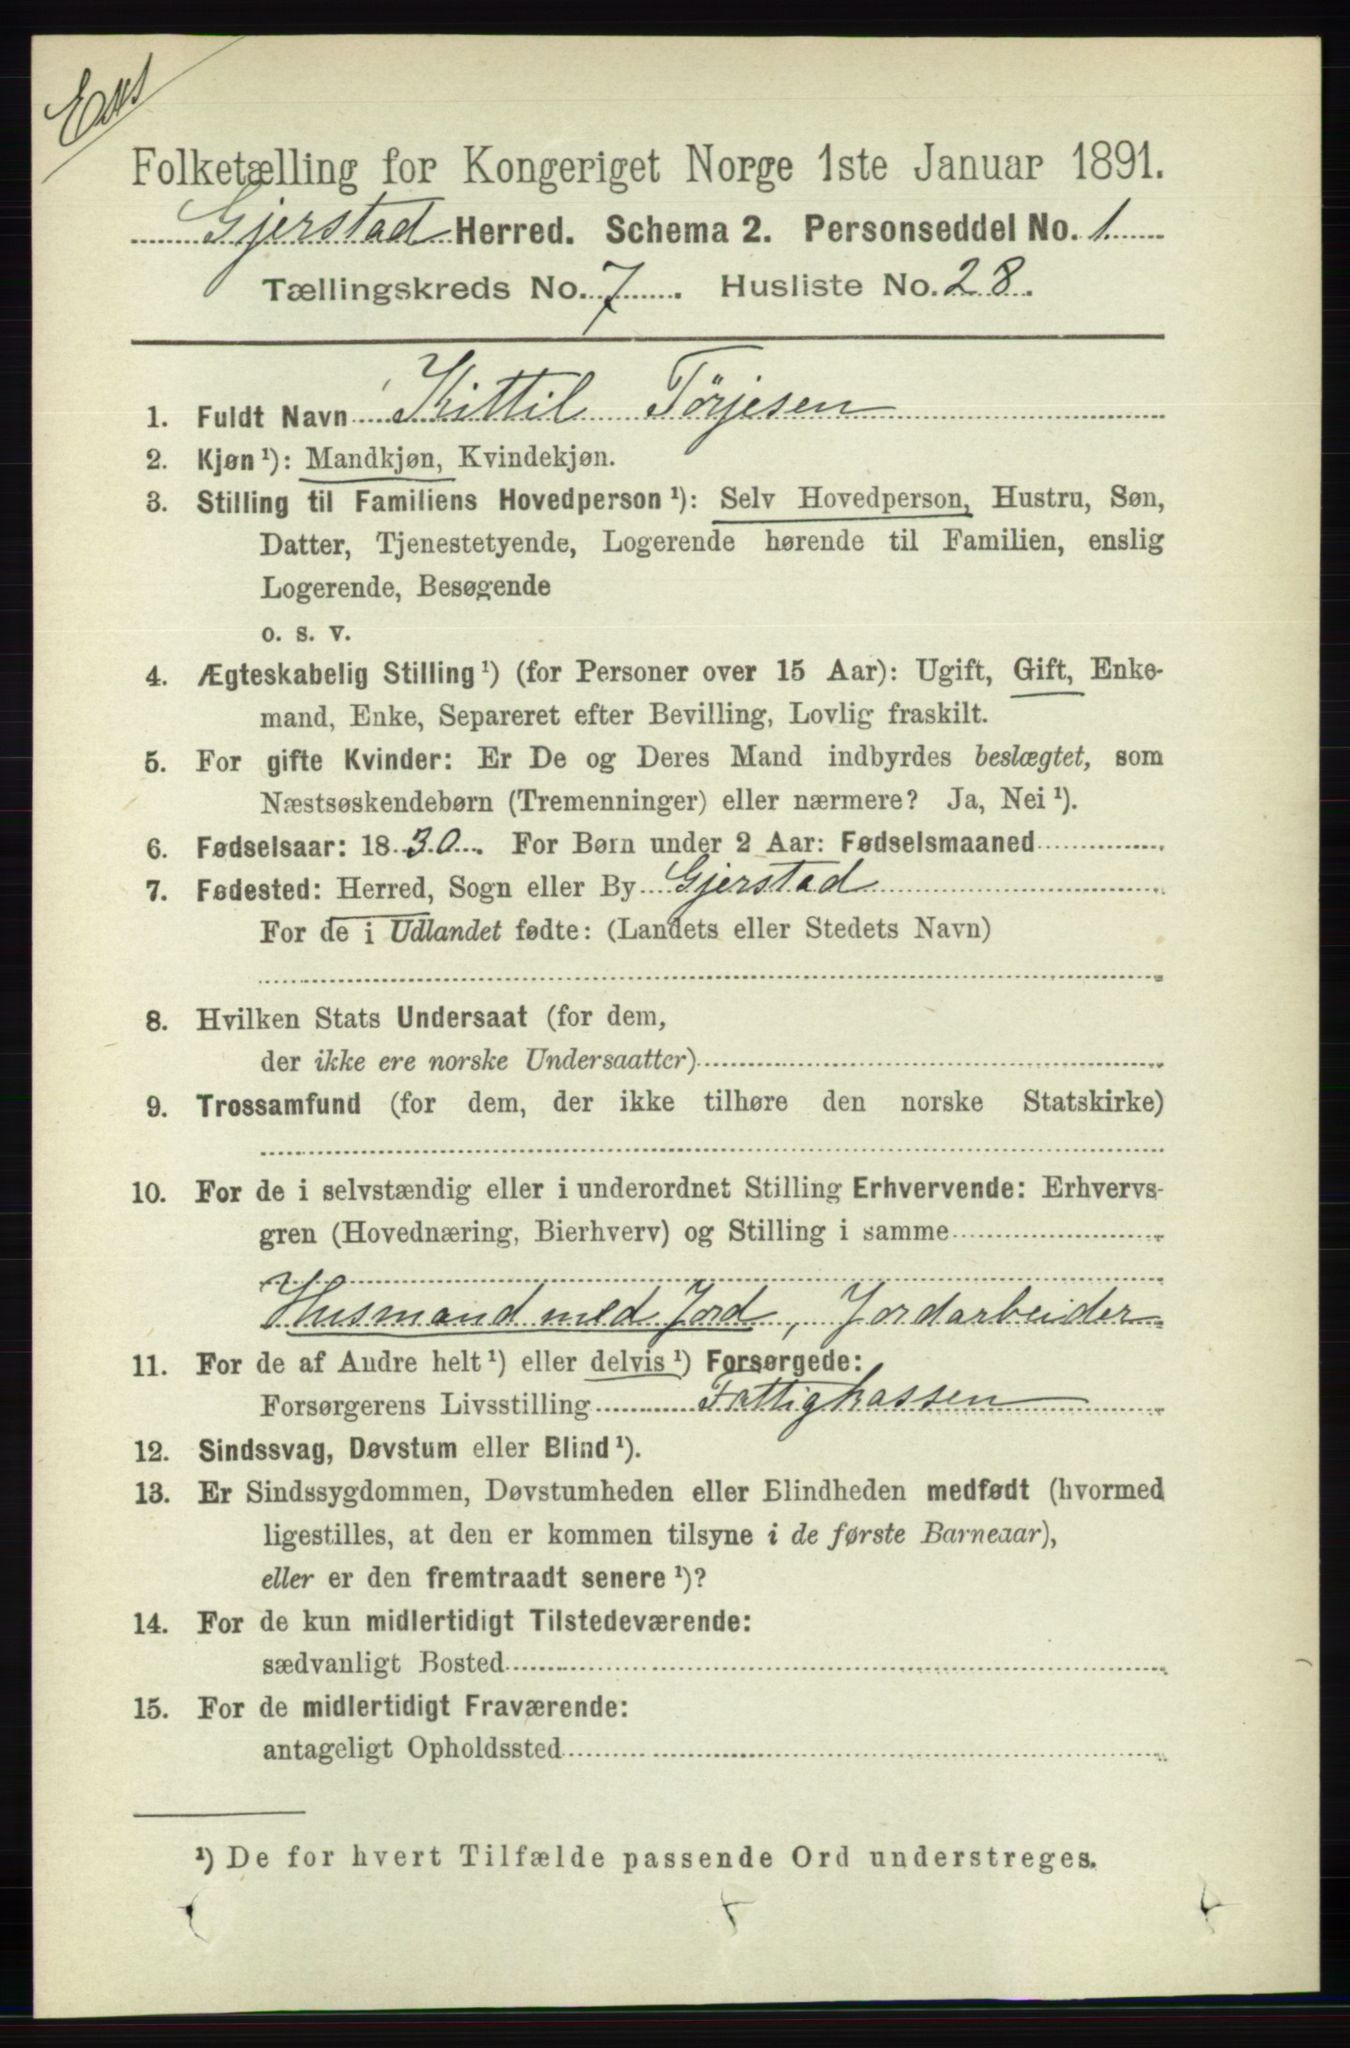 Folketælling for Kongeriget Norge 1ste Januar 1891.
Gjerstad Herred. Schema 2. Personseddel No. 1.
Tællingskreds No. 7. Husliste No. 28.
1. Fuldt Navn Kittil Tørjesen
2. Kjøn¹): Mandkjøn, Kvindekjøn.
3. Stilling til Familiens Hovedperson¹): Selv Hovedperson, Hustru, Søn,
Datter, Tjenestetyende, Logerende hørende til Familien, enslig
Logerende, Besøgende
o. s. v.
4. Ægteskabelig Stilling¹) (for Personer over 15 Aar): Ugift, Gift, Enke-
mand, Enke, Separeret efter Bevilling, Lovlig fraskilt.
5. For gifte Kvinder: Er De og Deres Mand indbyrdes beslægtet, som
Næstsøskendebørn (Tremenninger) eller nærmere? Ja, Nei¹).
6. Fødselsaar: 1830. For Børn under 2 Aar: Fødselsmaaned
7. Fødested: Herred, Sogn eller By Gjerstad
For de i Udlandet fødte: (Landets eller Stedets Navn)
8. Hvilken Stats Undersaat (for dem,
der ikke ere norske Undersaatter)
9. Trossamfund (for dem, der ikke tilhøre den norske Statskirke)
10. For de i selvstændig eller i underordnet Stilling Erhvervende: Erhvervs-
gren (Hovednæring, Bierhverv) og Stilling i samme
Husmand med Jord, Jordarbeider
11. For de af Andre helt¹) eller delvis¹) Forsørgede:
Forsørgerens Livsstilling Fattigkassen
12. Sindssvag, Døvstum eller Blind¹).
13. Er Sindssygdommen, Døvstumheden eller Blindheden medfødt (hvormed
ligestilles, at den er kommen tilsyne i de første Barneaar),
eller er den fremtraadt senere¹)?
14. For de kun midlertidigt Tilstedeværende:
sædvanligt Bosted
15. For de midlertidigt Fraværende:
antageligt Opholdssted
¹) De for hvert Tilfælde passende Ord understreges.